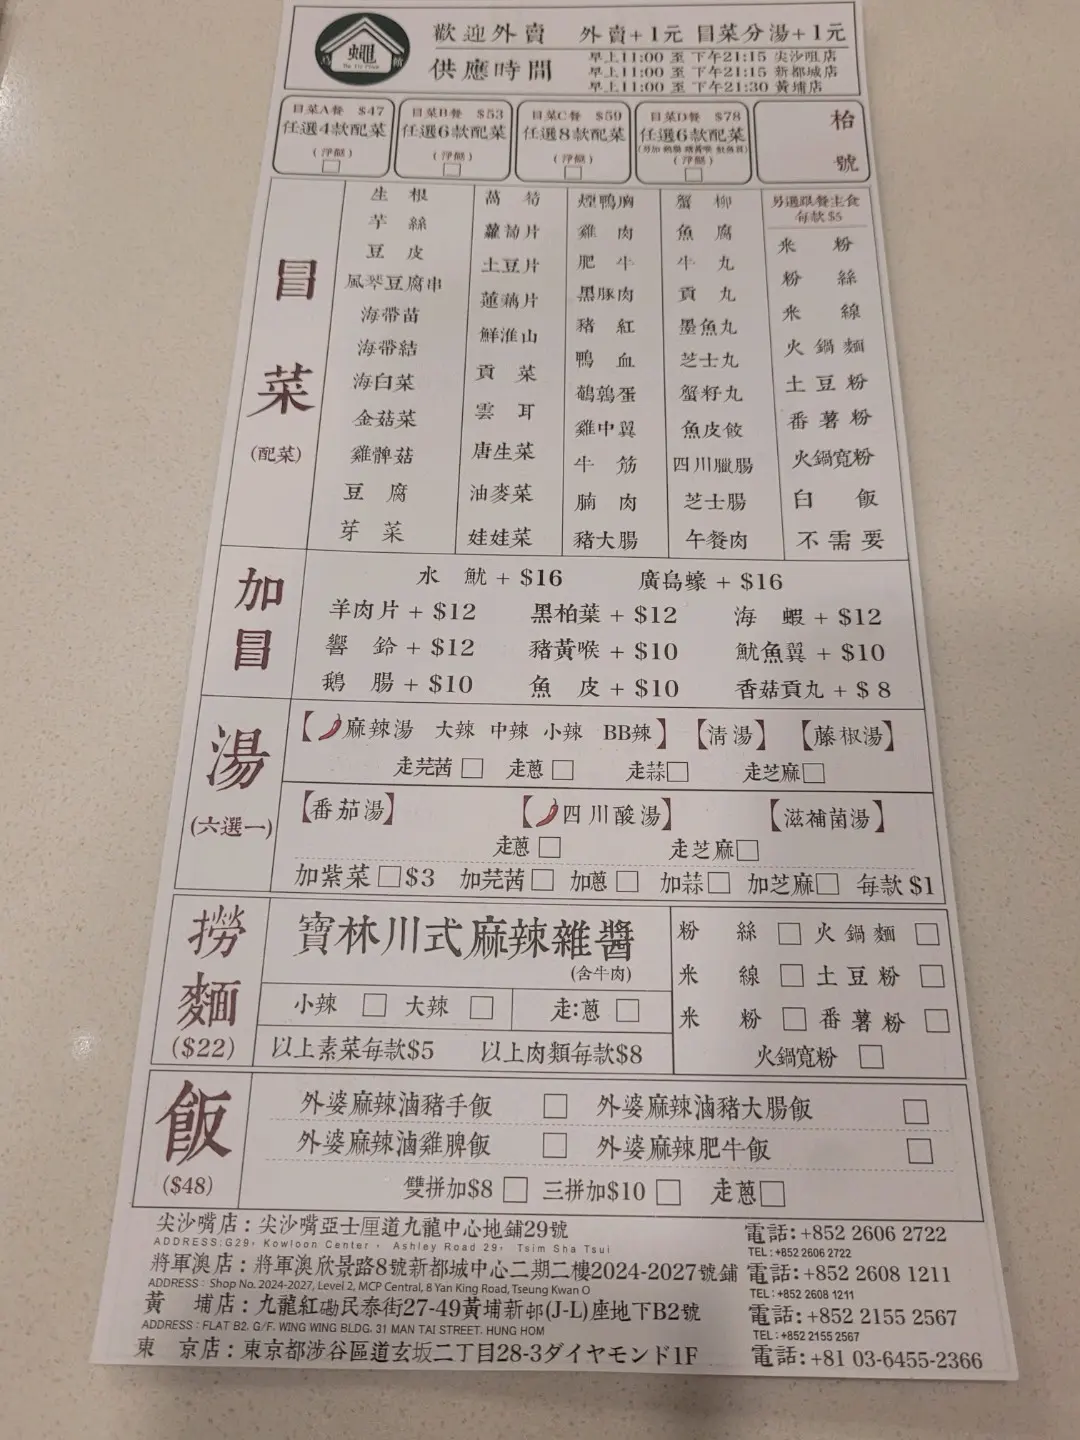 蠅
歡迎外賣 外賣+1元 冒菜分湯+1元
供應時間
早上11:00 至 下午21:15 尖沙咀店
早上11:00 至 下午21:15 新都城店
早上11:00 至 下午21:30 黃埔店
冒菜A餐 $47 冒菜B餐 $53 冒菜C餐 $59 冒菜D餐 $78 枱
任選4款配菜 任選6款配菜 任選8款配菜 任選6款配菜
(淨餸) (淨餸) (淨餸) (淨餸) 號
冒菜
(配菜)
生根 萵筍 煙鴨胸 蟹柳 另選跟餐主食
每款$5
芋絲 蘿蔔片 雞肉 魚腐 米粉
豆皮 土豆片 肥牛 牛丸 粉絲
風琴豆腐串 蓮藕片 黑豚肉 貢丸 米線
海帶苗 鮮淮山 豬紅 墨魚丸 火鍋麵
海帶結 貢菜 鴨血 芝士丸 土豆粉
海白菜 雲耳 鵪鶉蛋 蟹籽丸 番薯粉
金菇菜 唐生菜 雞中翼 魚皮餃 火鍋寬粉
雞髀菇 油麥菜 牛筋 四川臘腸 白飯
豆腐 娃娃菜 腩肉 芝士腸 不需要
芽菜 豬大腸 午餐肉
加冒
水魷 + $16 廣島蠔 + $16
羊肉片 + $12 黑柏葉 + $12 海蝦 + $12
響鈴 + $12 豬黃喉 + $10 魷魚翼 + $10
鵝腸 + $10 魚皮 + $10 香菇貢丸 + $ 8
湯
(六選一)
【麻辣湯 大辣 中辣 小辣 BB辣】 【清湯】 【藤椒湯】
走芫茜 走蔥 走蒜 走芝麻
【番茄湯】 【四川酸湯】 【滋補菌湯】
走蔥 走芝麻
加紫菜 $3 加芫茜 加蔥 加蒜 加芝麻 每款 $1
撈麵
($22)
寶林川式麻辣雜醬
(含牛肉)
小辣 大辣 走:蔥
以上素菜每款$5 以上肉類每款$8
粉絲 火鍋麵
米線 土豆粉
米粉 番薯粉
火鍋寬粉
飯
($48)
外婆麻辣滷豬手飯 外婆麻辣滷豬大腸飯
外婆麻辣滷雞脾飯 外婆麻辣肥牛飯
雙拼加$8 三拼加$10 走蔥
尖沙嘴店：尖沙嘴亞士厘道九龍中心地鋪29號 電話: +852 2606 2722
ADDRESS:G29, Kowloon Center, Ashley Road 29, Tsim Sha Tsui TEL : +852 2606 2722
將軍澳店：將軍澳欣景路8號新都城中心二期二樓2024-2027號鋪 電話: +852 2608 1211
ADDRESS : Shop No. 2024-2027, Level 2, MCP Central, 8 Yan King Road, Tseung Kwan O TEL : +852 2608 1211
黃埔店：九龍紅磡民泰街27-49黃埔新邨(J-L)座地下B2號 電話: +852 2155 2567
ADDRESS : FLAT B2, G/F, WING WING BLDG, 31 MAN TAI STREET, HUNG HOM TEL : +852 2155 2567
東京店：東京都涉谷區道玄坂二丁目28-3ダイヤモンド1F 電話: +81 03-6455-2366